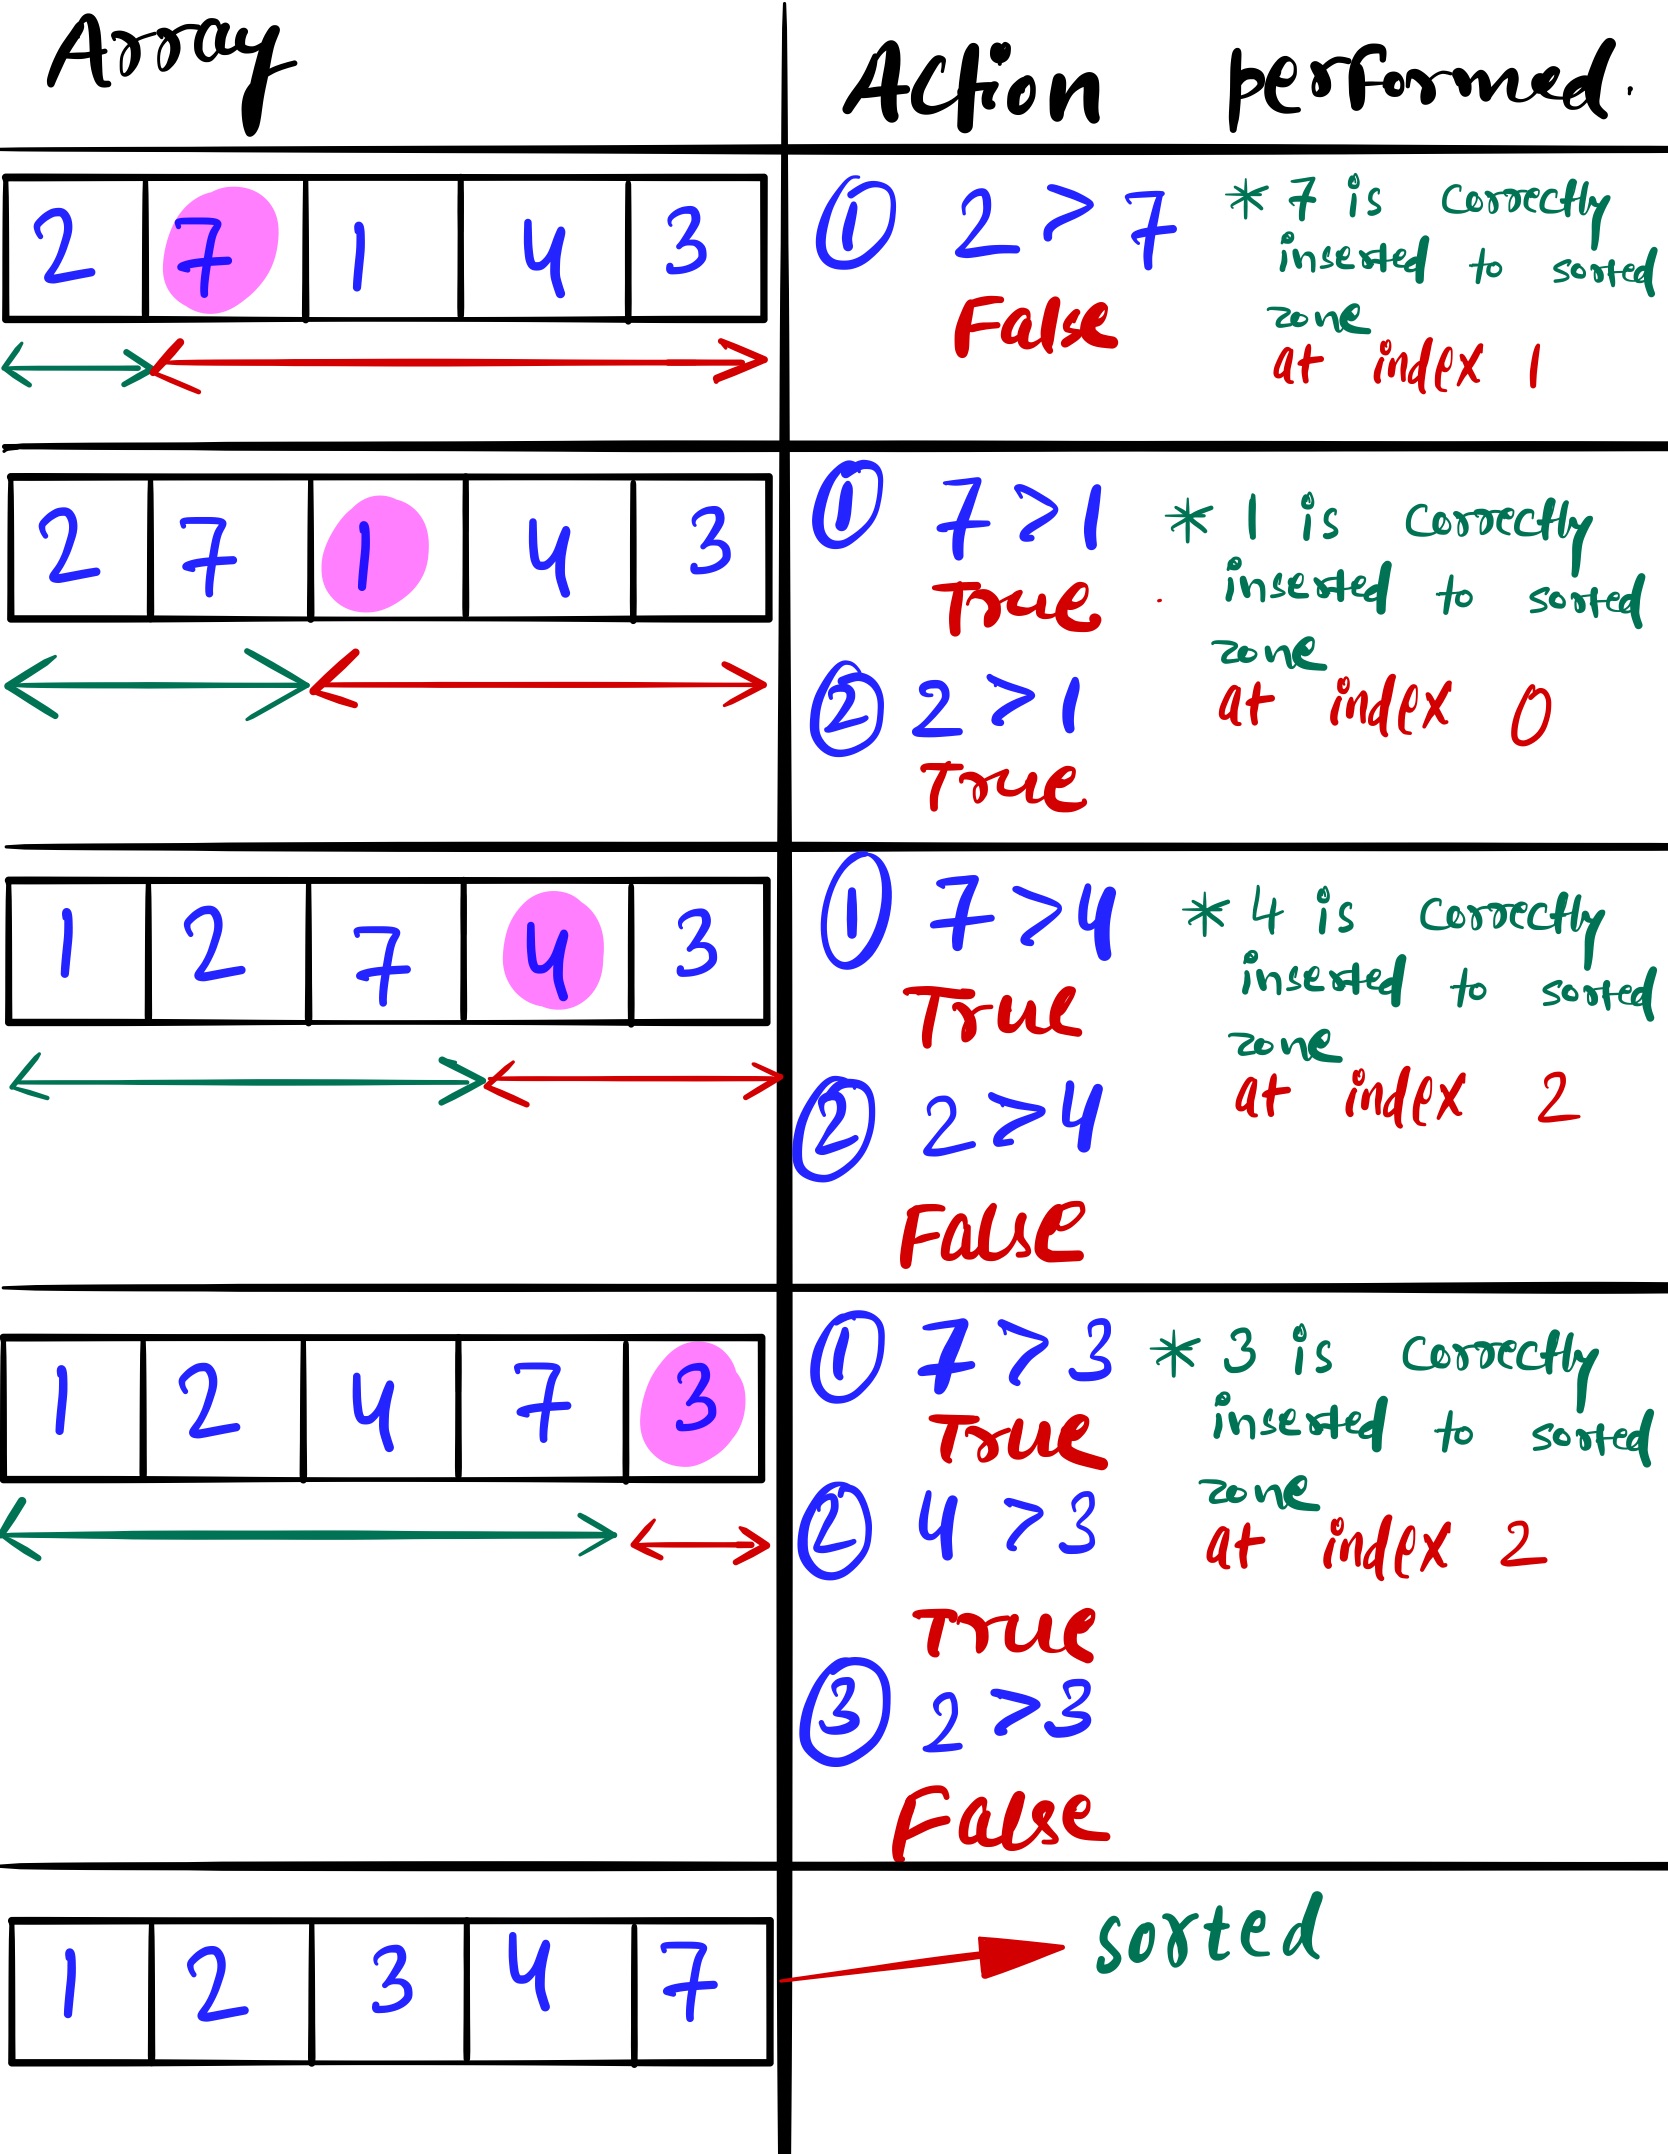 Array
Action performed.
2 7 1 4 3
① 2 > 7
False
* 7 is correctly
inserted to sorted
zone
at index 1
2 7 1 4 3
① 7 > 1
True
② 2 > 1
True
* 1 is correctly
inserted to sorted
zone
at index 0
1 2 7 4 3
① 7 > 4
True
② 2 > 4
False
* 4 is correctly
inserted to sorted
zone
at index 2
1 2 4 7 3
① 7 > 3
True
② 4 > 3
True
③ 2 > 3
False
* 3 is correctly
inserted to sorted
zone
at index 2
1 2 3 4 7
sorted